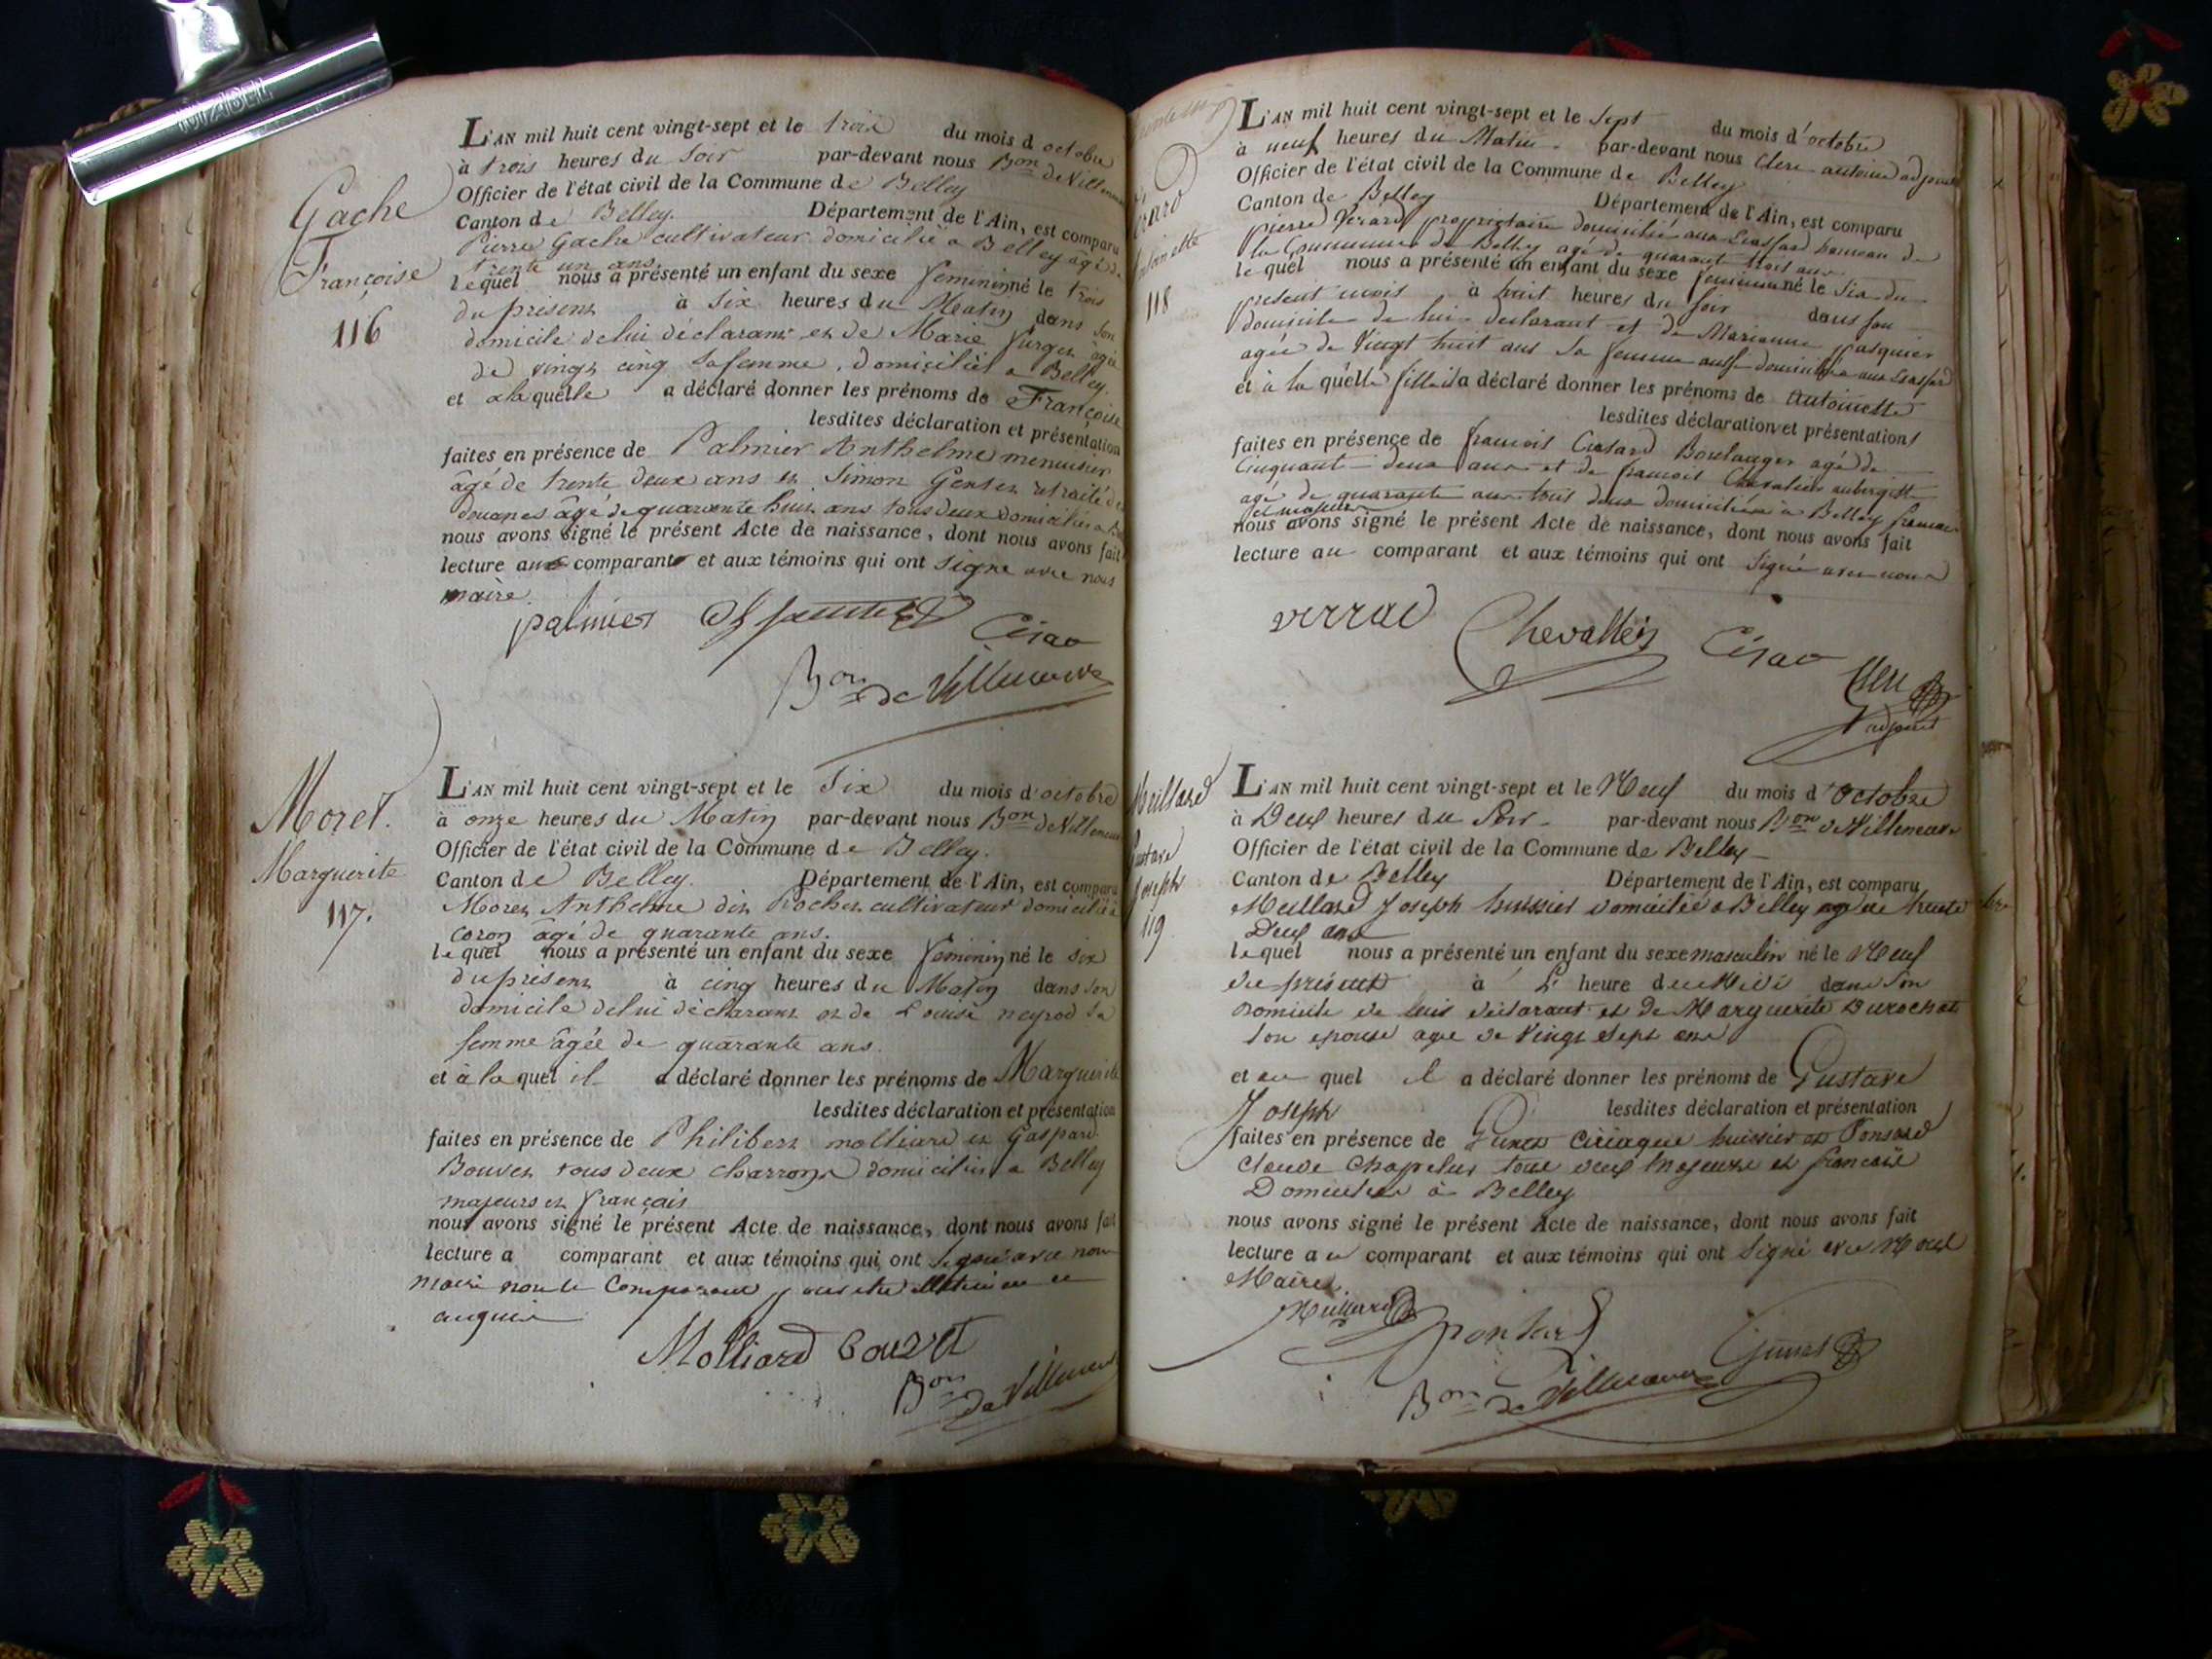 Gache
Françoise
116
L'AN mil huit cent vingt-sept et le trois du mois d octobre
à trois heures du Soir par-devant nous Bon de Villeneuve
Officier de l'état civil de la Commune de Belley
Canton de Belley. Département de l'Ain, est comparu
Pierre Gache cultivateur domicilié a Belley agé de
trente un ans.
lequel nous a présenté un enfant du sexe feminin né le trois
du présent à six heures du Matin dans son
domicile de lui déclarant et de Marie agée
de vingt cinq sa femme, domiciliés a Belley.
et a laquelle a déclaré donner les prénoms de Françoise
lesdites déclaration et présentation
faites en présence de Palmier Anthelme menuisier
âgé de trente deux ans et Simon retraité des
douanes âgé de quarante huit ans tous deux domiciliés a
nous avons signé le présent Acte de naissance, dont nous avons fait
lecture aux comparants et aux témoins qui ont signé avec nous
maire.
palmier César
Bon de Villeneuve
Moret.
Marguerite
117.
L'AN mil huit cent vingt-sept et le Six du mois d'octobre
à onze heures du Matin par-devant nous Bon de Villeneuve
Officier de l'état civil de la Commune de Belley.
Canton de Belley. Département de l'Ain, est comparu
Moret Anthelme dit Rochet cultivateur domicilié à
coron agé de quarante ans.
lequel nous a présenté un enfant du sexe feminin né le six
du présent à cinq heures du Matin dans son
domicile de lui déclarant et de Louise neyrod sa
femme âgée de quarante ans.
et à la quel il a déclaré donner les prénoms de Marguerite
lesdites déclaration et présentation
faites en présence de Philibert molliard et Gaspard
Bouvet tous deux charrons domiciliés a Belley
majeurs et français
nous avons signé le présent Acte de naissance, dont nous avons fait
lecture a comparant et aux témoins qui ont signé avec nous
maire non le Comparant pour etre de ce
enquis
Molliard Bouvet
Bon de Villeneuve
118
L'AN mil huit cent vingt-sept et le sept du mois d'octobre
à neuf heures du Matin. par-devant nous Clerc antoine adjoint
Officier de l'état civil de la Commune de Belley
Canton de Belley Département de l'Ain, est comparu
pierre Vérard propriétaire domicilié aux hameau de
la Commune de Belley agé de quarante trois ans
lequel nous a présenté un enfant du sexe feminin né le Six du
présent mois à huit heures du soir dans son
domicile de lui declarant et de Marianne pasquier
agée de Vingt huit ans sa femme aussi domiciliée aux
et à la quelle fille il a déclaré donner les prénoms de antoinette
lesdites déclaration et présentations
faites en présence de françois Boulanger agé de
Cinquante deux ans et de françois Chevalier aubergiste
agé de quarante ans tous deux domiciliés à Belley francais
et majeurs
nous avons signé le présent Acte de naissance, dont nous avons fait
lecture au comparant et aux témoins qui ont signé avec nous
verrad Chevallier César
Clerc
adjoint
Meillard
Gustave
Joseph
119
L'AN mil huit cent vingt-sept et le Neuf du mois d'Octobre
à Deux heures du Soir par-devant nous Bon de Villeneuve
Officier de l'état civil de la Commune de Belley
Canton de Belley Département de l'Ain, est comparu
Meillard Joseph huissier domicilié a Belley agé de trente
Deux ans
lequel nous a présenté un enfant du sexe masculin né le Neuf
du présent à L' heure de Midi dans son
Domicile de lui déclarant et de Marguerite Durochat
son epouse agée de Vingt Sept ans
et au quel il a déclaré donner les prénoms de Gustave
Joseph lesdites déclaration et présentation
faites en présence de Ciriaque huissier et Ponsard
Claude Chapelier tous deux majeurs et français
Domiciliés à Belley
nous avons signé le présent Acte de naissance, dont nous avons fait
lecture au comparant et aux témoins qui ont signé avec Nous
Maire
Meillard ponsard
Bon de Villeneuve